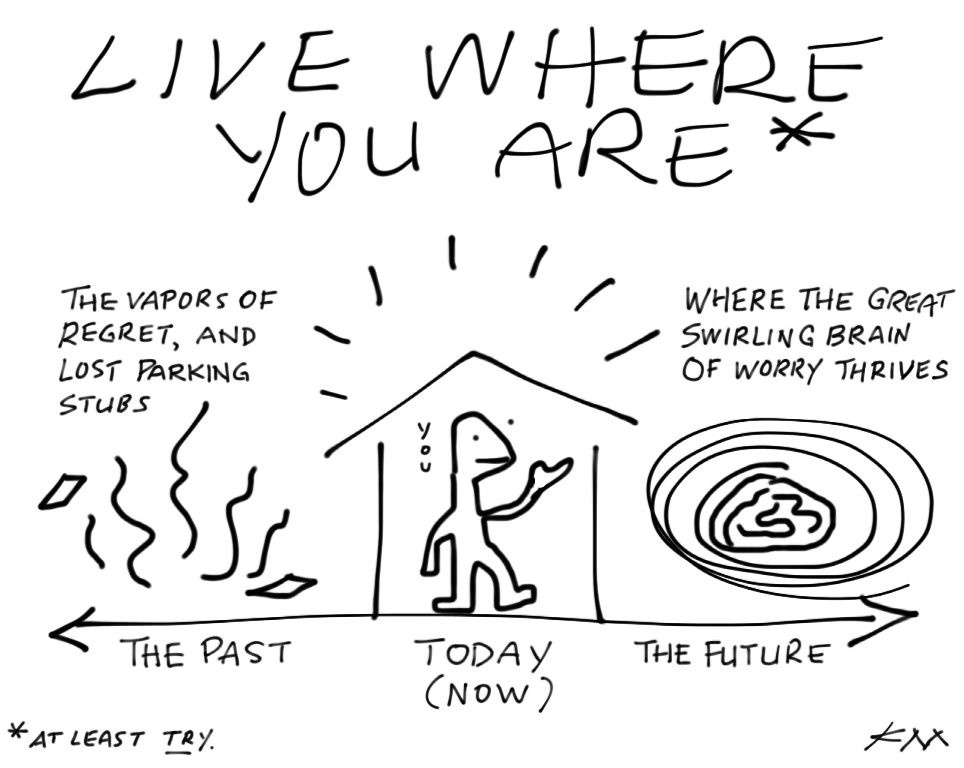 LIVE WHERE
YOU ARE*
THE VAPORS OF
REGRET, AND
LOST PARKING
STUBS
WHERE THE GREAT
SWIRLING BRAIN
OF WORRY THRIVES
YOU
THE PAST
TODAY
(NOW)
THE FUTURE
*AT LEAST TRY.